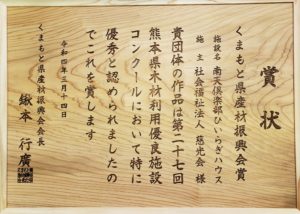 賞状
くまもと県産材振興会賞
施設名 南天倶楽部ひいらぎハウス
施主 社会福祉法人 慈光会 様
貴団体の作品は第二十七回
熊本県木材利用優良施設
コンクールにおいて特に
優秀と認められましたの
でこれを賞します
令和四年三月十四日
くまもと県産材振興会会長
鍬本 行廣